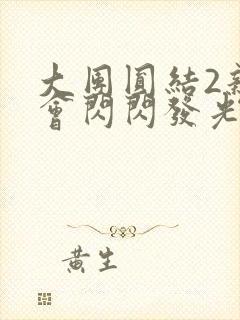 大團圓結2新
會閃閃發光
黃生